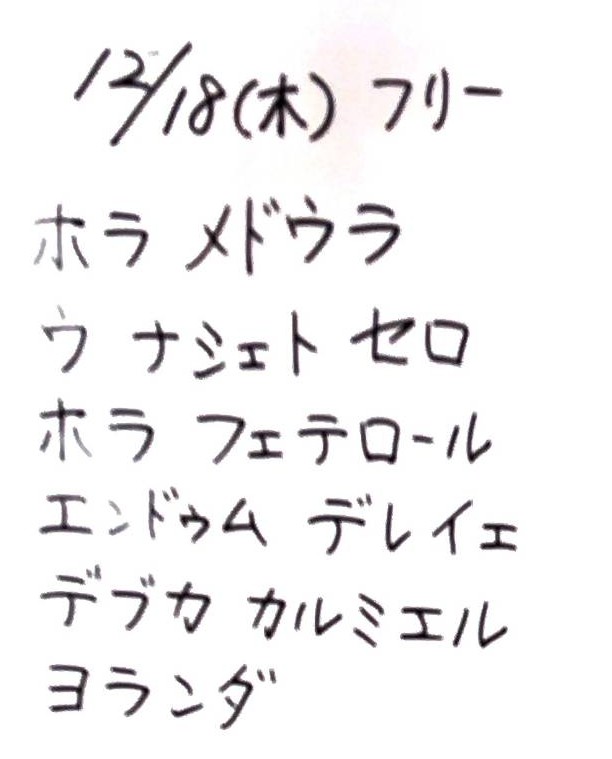 12/18(木) フリー
ホラ メドウラ
ウ ナシェト セロ
ホラ フェテロール
エンドゥム デレイエ
デブカ カルミエル
ヨランダ